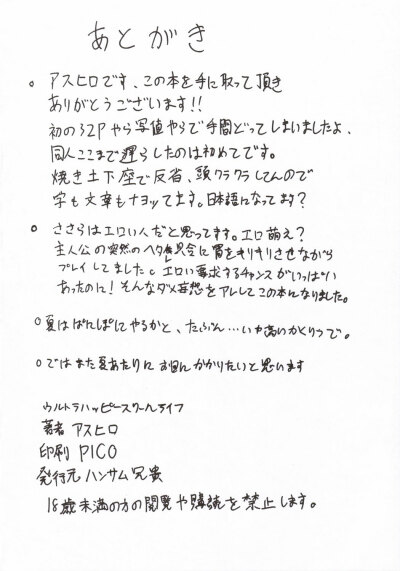 あとがき
○ アスヒロです、この本を手に取って頂き
ありがとうございます!!
初の32Pやら写植やらで手間どってしまいましたよ、
同人ここまで遅らしたのは初めてです。
焼き土下座で反省、頭クラクラしてんので
字も文章もナヨッてます。日本語になってます?
○ ささらはエロい人だと思ってます。エロ萌え?
主人公の突然のヘタレ具合に胃をキリキリさせながら
プレイしてました。エロい要求するチャンスがいっぱい
あったのに!そんなダメ妄想をアレしてこの本になりました。
○夏はぱんぽにやるかと、たぶん…いや高いかくりつで。
○ではまた夏あたりにお目にかかりたいと思います
ウルトラハッピースクールライフ
著者 アスヒロ
印刷 PICO
発行元 ハンサム兄貴
18歳未満の方の閲覧や購読を禁止します。